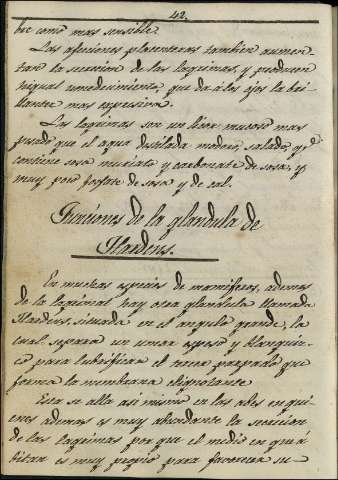 42.
bre como mas sensible.
Las afeciones plasenteras tambien aumen-
tan la secrecion de las lagrimas, y producen
higual umedecimiento, que da á los ojos la bri-
llantez mas espresiva.
Las lagrimas son un licor mucoso mas
pesado que el agua destilada modico, salado, qe.
contiene sosa muriato y carbonate de sosa, y
muy poco fosfate de sosa y de cal.
Funciones de la glandula de
Harderus.
En muchas especies de mamiferos, ademas
de la lagrimal hay otra glandula llamada
Harderus, situada en el angulo grande, la
cual separa un umor espeso y blanquis-
co para lubrificar el tercer parpado que
forma la membrana clignotante.
Esta se alla asi mismo en las abes en qui-
enes ademas es muy abundante la secrecion
de las lagrimas por que el medio en que á
bitan es muy propio para favorecer su